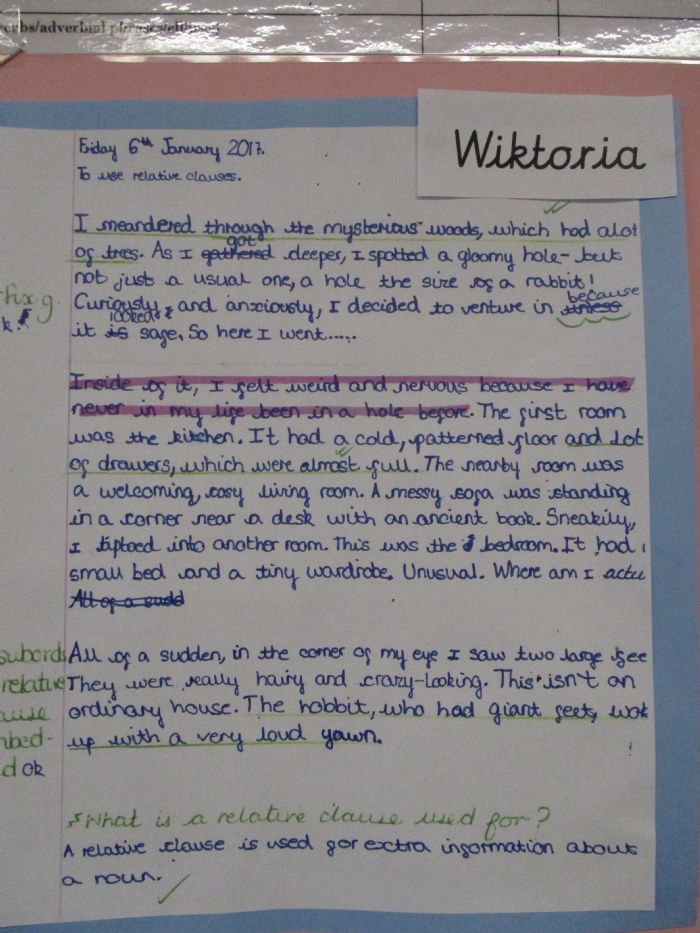 erbs/adverbial phrases/clauses
Wiktoria
Friday 6th January 2017.
To use relative clauses.
I meandered through the mysterious woods, which had alot
of trees. As I gathered got deeper, I spotted a gloomy hole - but
not just a usual one, a hole the size of a rabbit!
fix g.
Curiously, and anxiously, I decided to venture in unless because
k.
it is looked safe. So here I went.....
Inside of it, I felt weird and nervous because I have
never in my life been in a hole before. The first room
was the kitchen. It had a cold, patterned floor and lot
of drawers, which were almost full. The nearby room was
a welcoming, cosy living room. A messy sofa was standing
in a corner near a desk with an ancient book. Sneakily,
I tiptoed into another room. This was the bedroom. It had
small bed and a tiny wardrobe. Unusual. Where am I actu
All of a sudd
subord
All of a sudden, in the corner of my eye I saw two large fee
relative
They were really hairy and crazy-looking. This isn't an
ause
ordinary house. The hobbit, who had giant feet, wok
mbed-
up with a very loud yawn.
d ok
What is a relative clause used for?
A relative clause is used for extra information about
a noun.